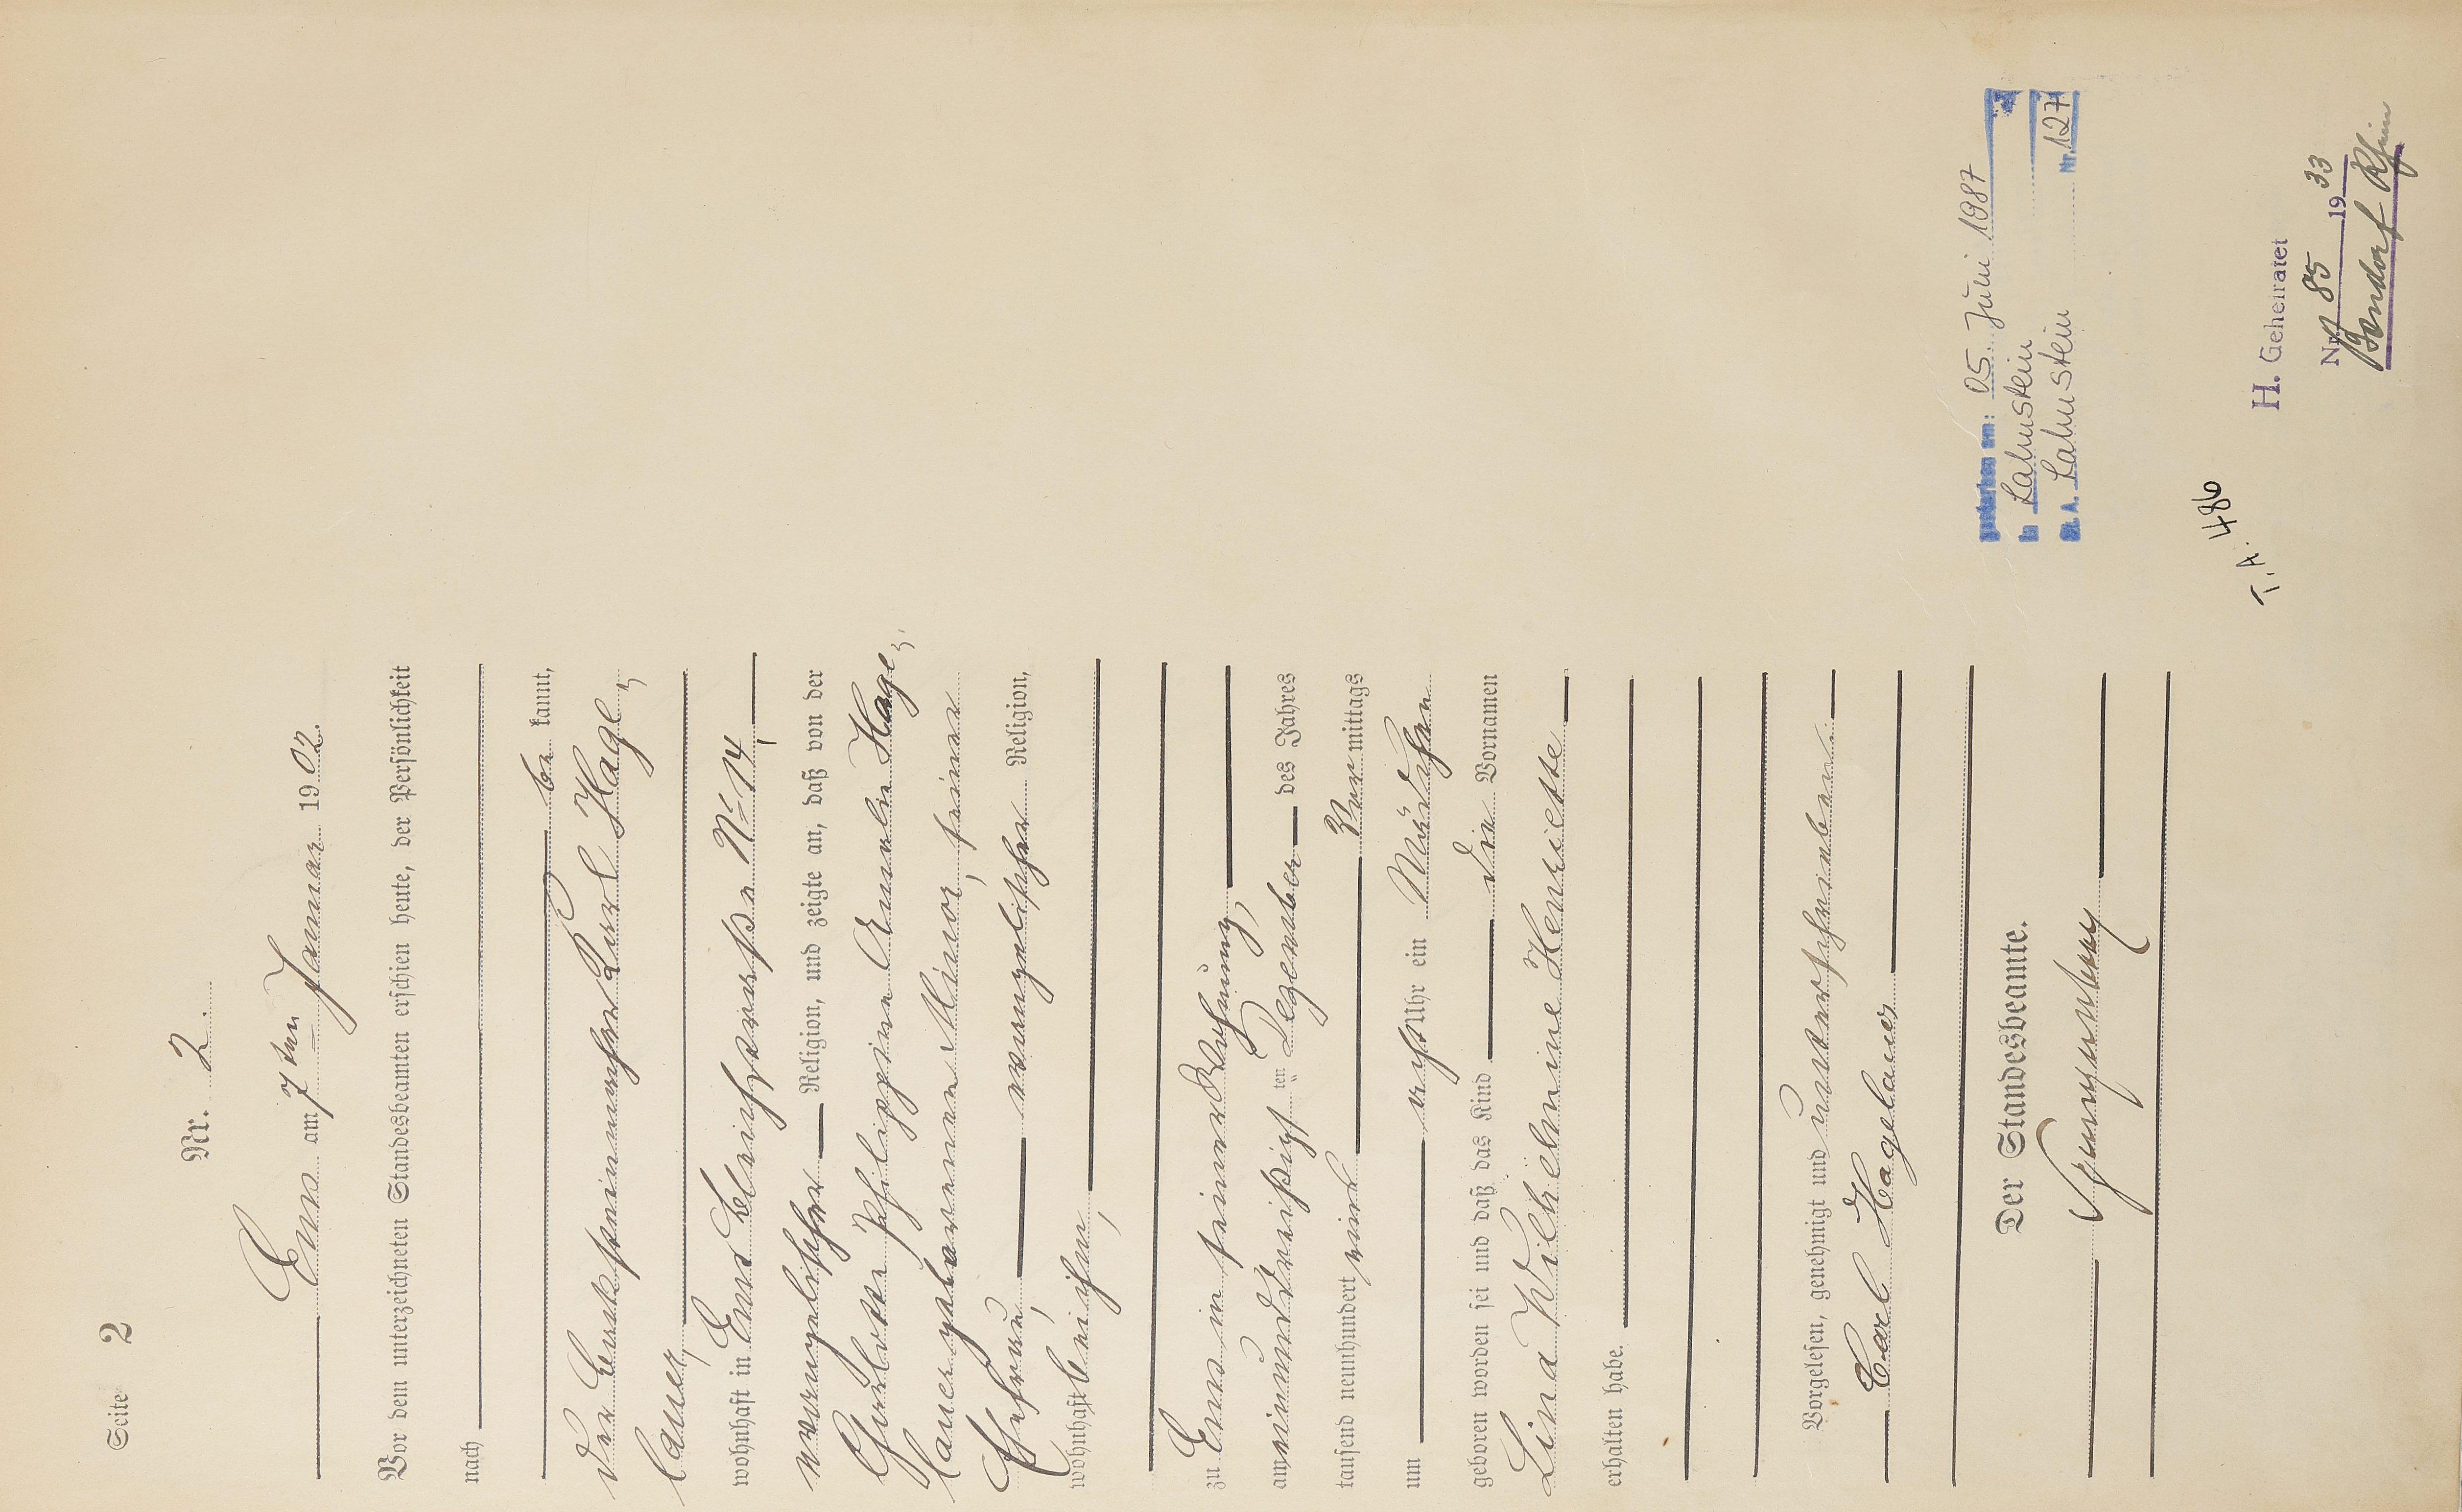 Seite 2
Nr. 2.
Ems am 7ten Januar 1902.
Vor dem unterzeichneten Standesbeamten erschien heute, der Persönlichkeit
nach
be kannt,
der Karl Hage-
lauer,
wohnhaft in Ems Bleichstraße No 14,
evangelischer Religion, und zeigte an, daß von der
Charlotte Philippine Amalie Hage-
lauer geborenen Minor, seiner
Ehefrau, evangelischer Religion,
wohnhaft bei ihm,
zu Ems in seiner Wohnung,
am einunddreißigsten Dezember des Jahres
tausend neunhundert eins Vor mittags
um acht Uhr ein Mädchen
geboren worden sei und daß das Kind die Vornamen
Lina Wilhelmine Henriette
erhalten habe.
Vorgelesen, genehmigt und unterschrieben:
Carl Hagelauer
Der Standesbeamte.
gestorben am: 05. Juni 1987
in Lahnstein
St. A. Lahnstein Nr. 127
T.A. 486
H. Geheiratet
Nr. 85 1933
Bendorf Rhein